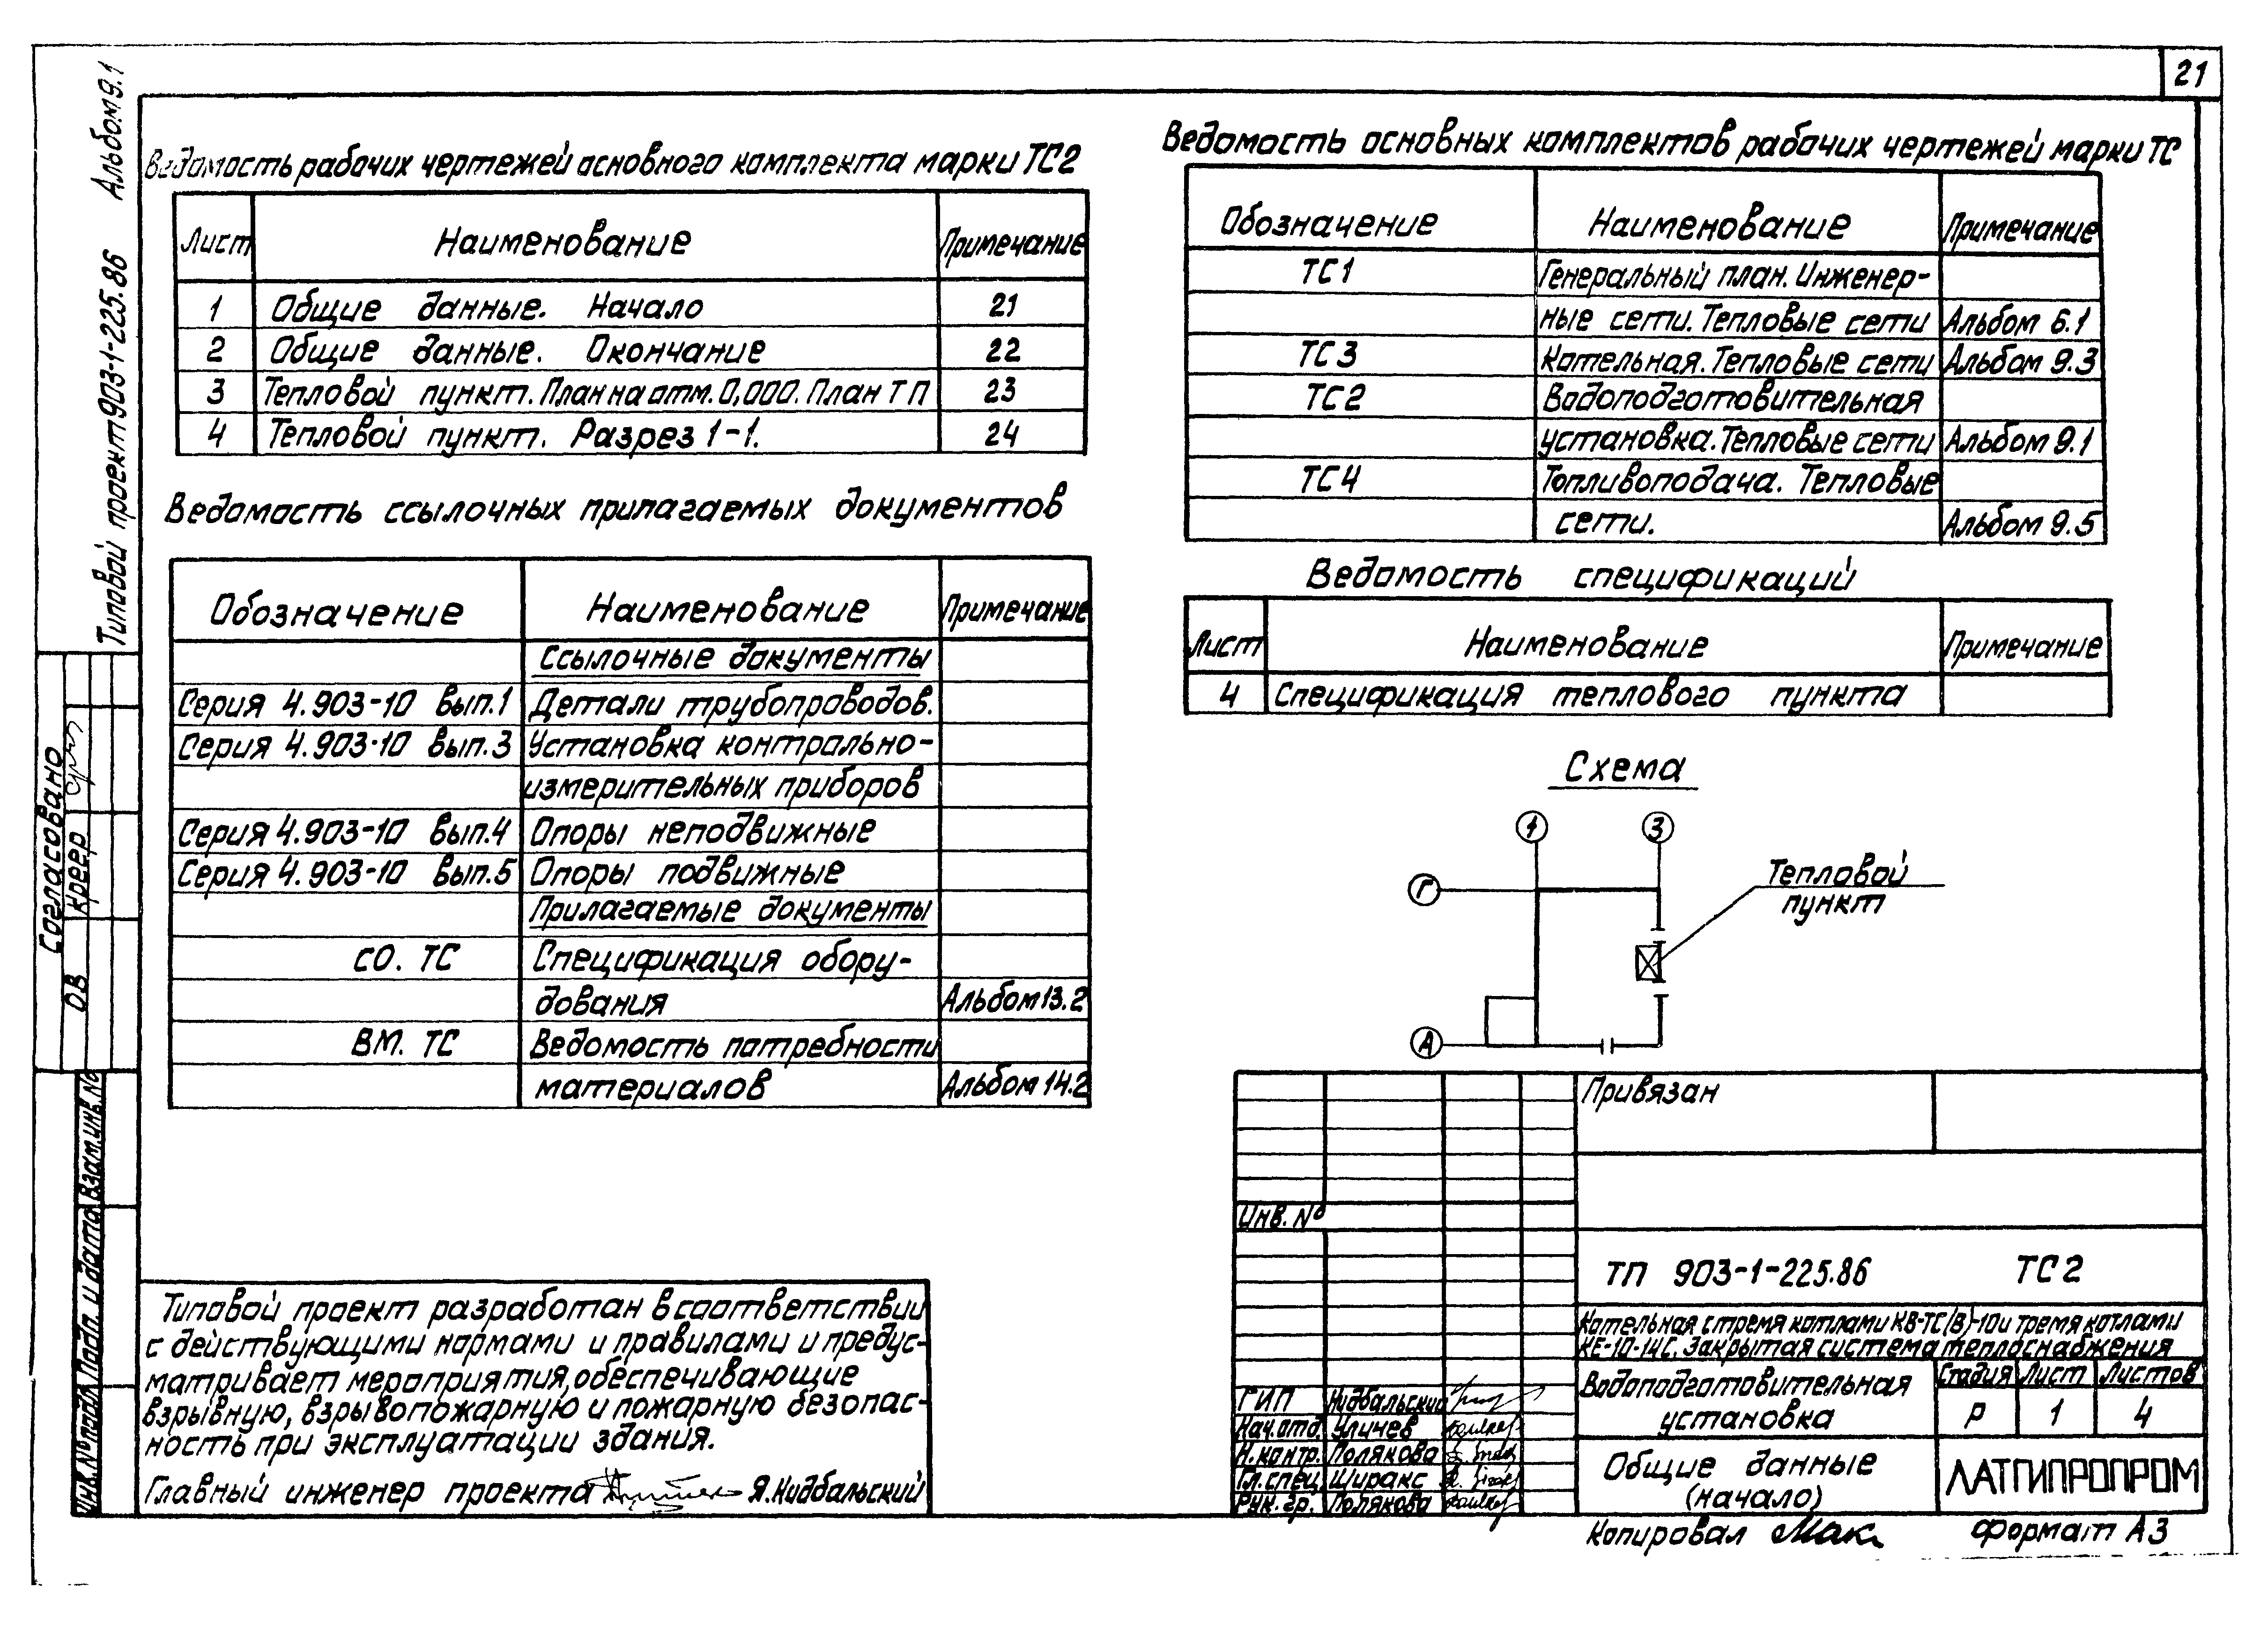 21
Альбом 9.1
Типовой проект 903-1-225.86
Ведомость рабочих чертежей основного комплекта марки ТС2
Лист Наименование Примечание
1 Общие данные. Начало 21
2 Общие данные. Окончание 22
3 Тепловой пункт. План на отм. 0,000. План ТП 23
4 Тепловой пункт. Разрез 1-1. 24
Ведомость ссылочных прилагаемых документов
Обозначение Наименование Примечание
Ссылочные документы
Серия 4.903-10 вып.1 Детали трубопроводов.
Серия 4.903-10 вып.3 Установка контрольно-
измерительных приборов
Серия 4.903-10 вып.4 Опоры неподвижные
Серия 4.903-10 вып.5 Опоры подвижные
Прилагаемые документы
СО. ТС Спецификация обору-
дования Альбом 13.2
ВМ. ТС Ведомость потребности
материалов Альбом 14.2
Типовой проект разработан в соответствии
с действующими нормами и правилами и предус-
матривает мероприятия, обеспечивающие
взрывную, взрывопожарную и пожарную безопас-
ность при эксплуатации здания.
Главный инженер проекта Я.Нидбальский
Ведомость основных комплектов рабочих чертежей марки ТС
Обозначение Наименование Примечание
ТС1 Генеральный план. Инженер-
ные сети. Тепловые сети Альбом 6.1
ТС3 Котельная. Тепловые сети Альбом 9.3
ТС2 Водоподготовительная
установка. Тепловые сети Альбом 9.1
ТС4 Топливоподача. Тепловые
сети. Альбом 9.5
Ведомость спецификаций
Лист Наименование Примечание
4 Спецификация теплового пункта
Схема
1 3
Г
Тепловой
пункт
А
Привязан
Инв. №
ТП 903-1-225.86 ТС2
Котельная с тремя котлами КВ-ТС(В)-10 и тремя котлами
КЕ-10-14С. Закрытая система теплоснабжения
Водоподготовительная
установка
Стадия Лист Листов
Р 1 4
Общие данные
(начало)
ЛАТГИПРОПРОМ
ГИП Нидбальский
Нач.отд. Уличев
Н.контр. Полякова
Гл.спец. Ширакс
Рук.гр. Полякова
Копировал Мак
Формат А3
Согласовано
ОВ Креер
Взам.инв.№
Подп. и дата
Инв.№ подл.